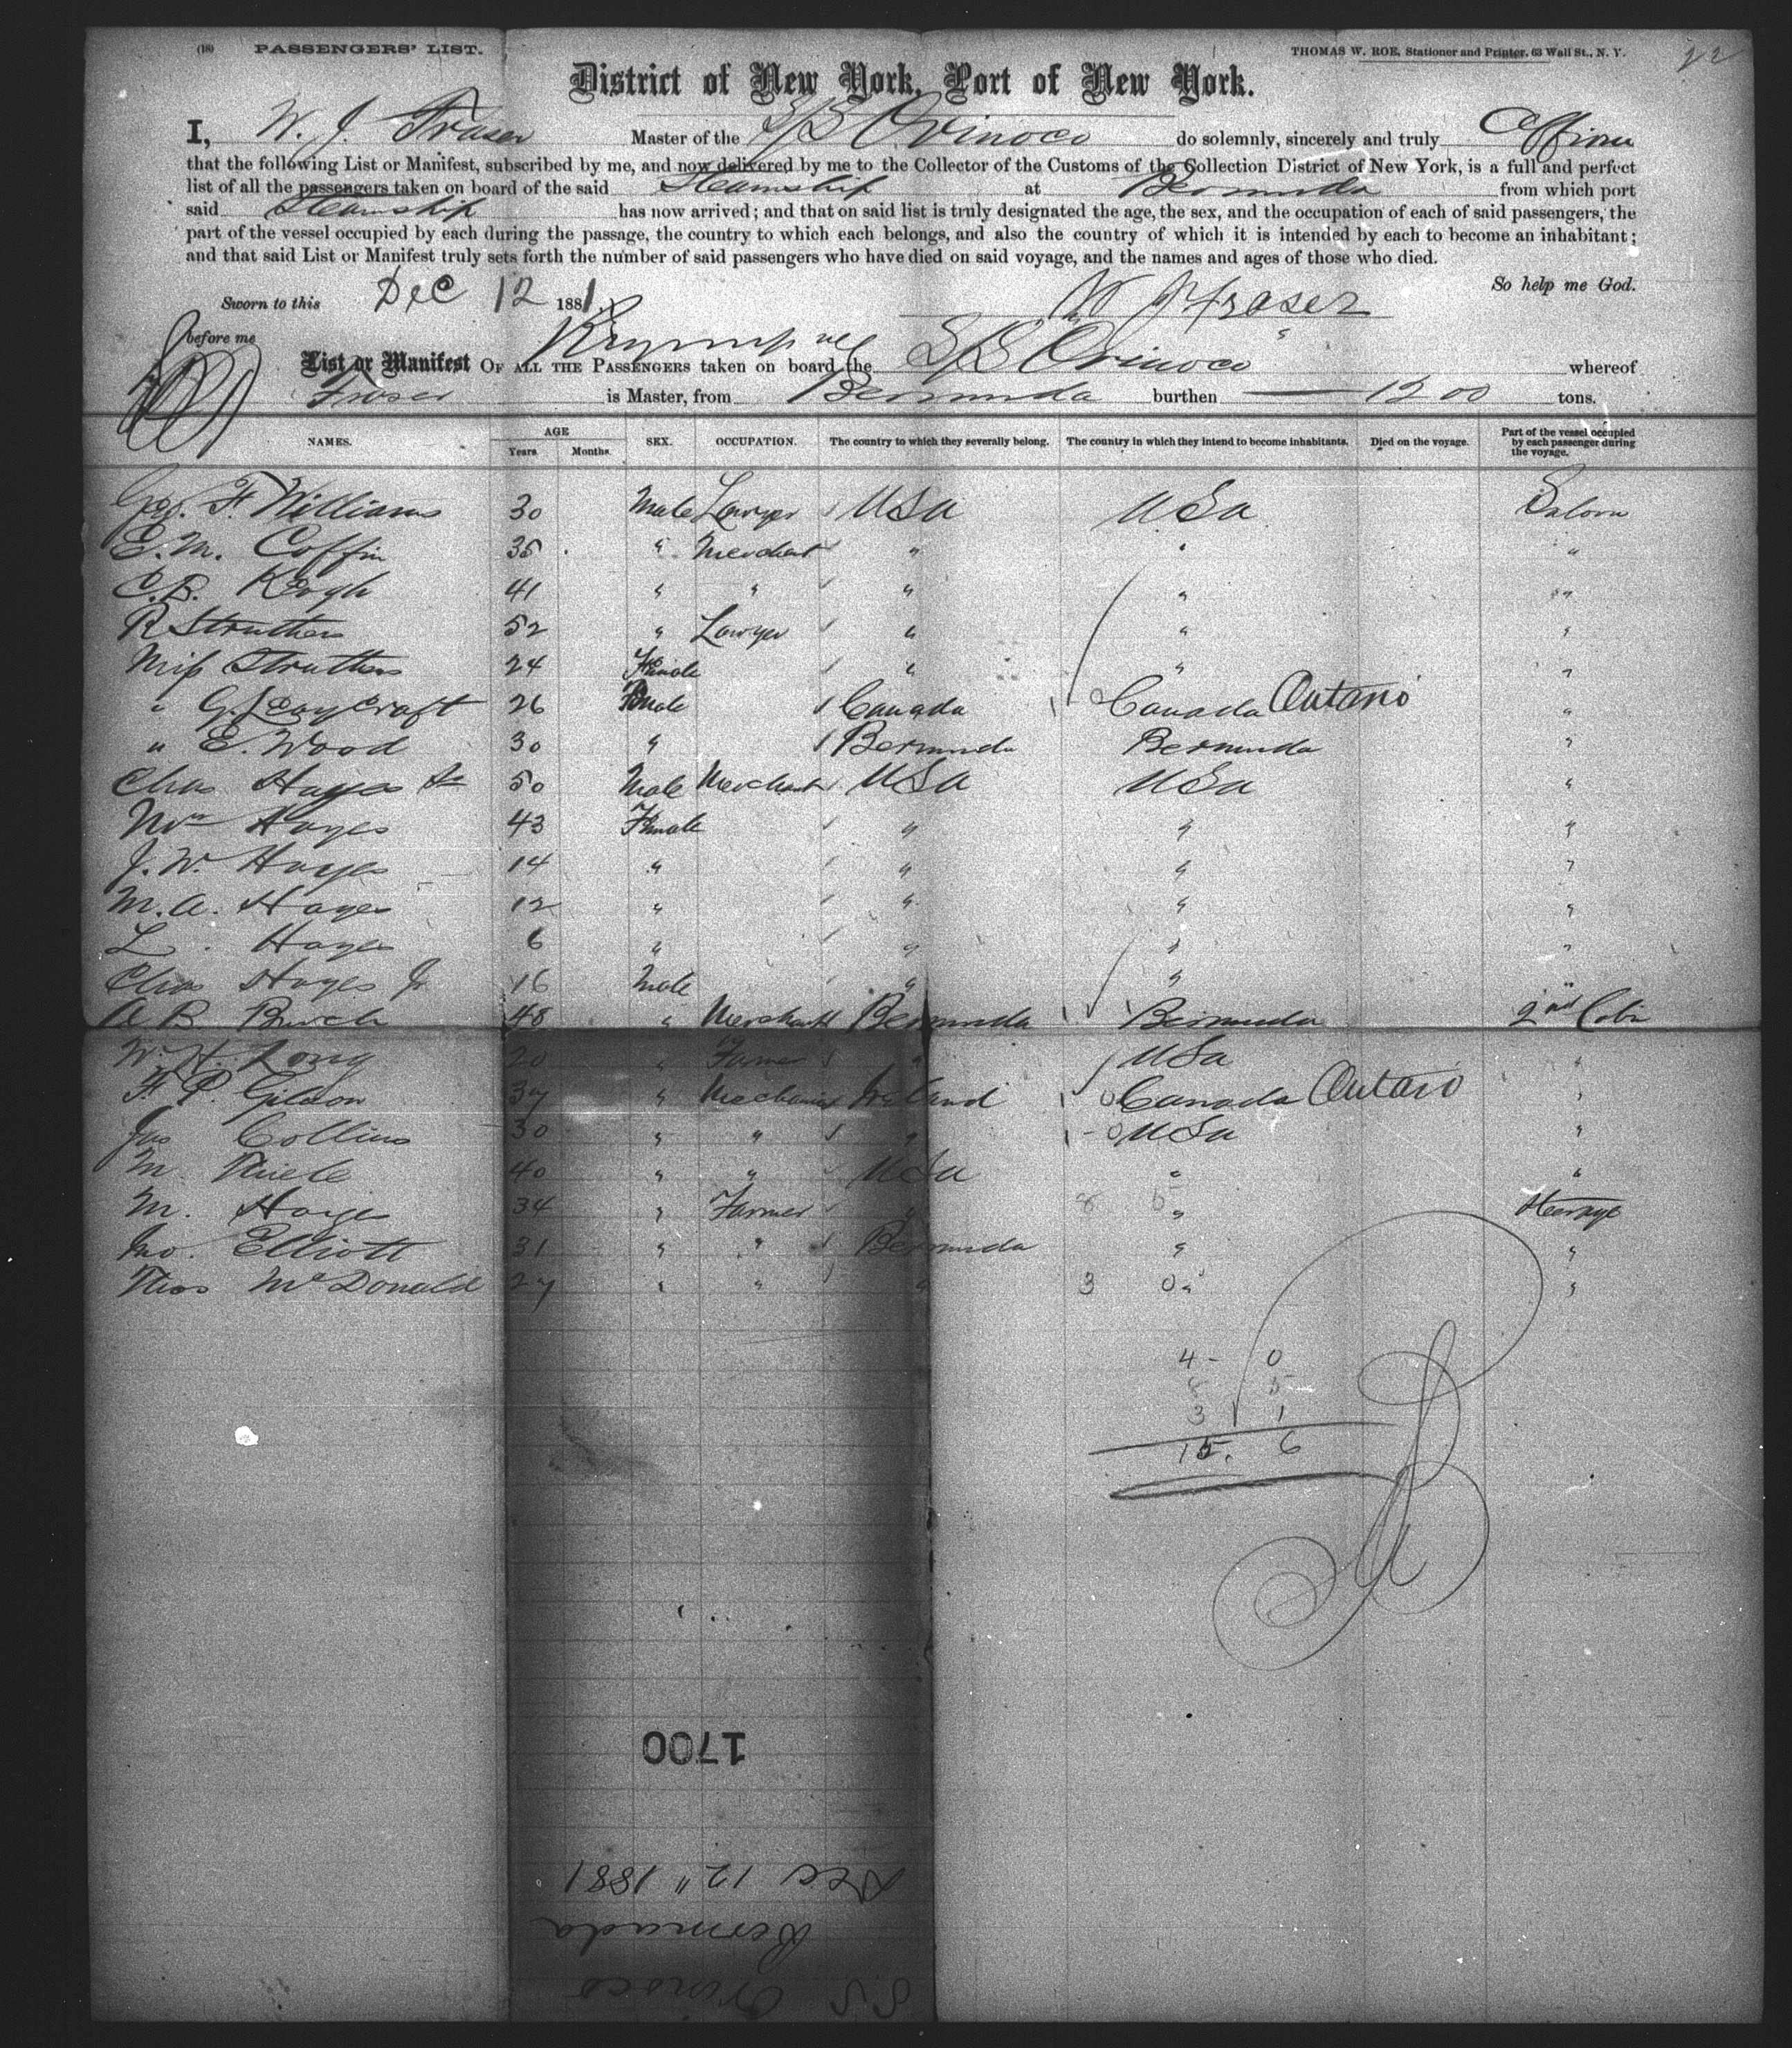 (18) PASSENGERS' LIST. THOMAS W. ROE, Stationer and Printer, 63 Wall St., N. Y. 22
District of New York, Port of New York.
I, W. J. Fraser Master of the S/S Orinoco do solemnly, sincerely and truly affirm
that the following List or Manifest, subscribed by me, and now delivered by me to the Collector of the Customs of the Collection District of New York, is a full and perfect
list of all the passengers taken on board of the said Steamship at Bermuda from which port
said Steamship has now arrived; and that on said list is truly designated the age, the sex, and the occupation of each of said passengers, the
part of the vessel occupied by each during the passage, the country to which each belongs, and also the country of which it is intended by each to become an inhabitant;
and that said List or Manifest truly sets forth the number of said passengers who have died on said voyage, and the names and ages of those who died.
So help me God.
Sworn to this Dec 12 1881. W J Fraser
before me
List or Manifest OF ALL THE PASSENGERS taken on board the S/S Orinoco whereof
Fraser is Master, from Bermuda burthen 1200 tons.
NAMES. AGE Years Months. SEX. OCCUPATION. The country to which they severally belong. The country in which they intend to become inhabitants. Died on the voyage. Part of the vessel occupied by each passenger during the voyage.
Geo. F. Williams 30 Male Lawyer USA USA Saloon
E. M. Coffin 35 " Merchant " " "
C. B. Keogh 41 " " " " "
R Struthers 52 " Lawyer " " "
Miss Struthers 24 Female " " "
" G. Leaycraft 26 male Canada Canada Ontario "
" E. Wood 30 " Bermuda Bermuda "
Chas Hayes Sr 50 Male Merchant USA USA "
Mrs Hayes 43 Female " " "
J. W. Hayes 14 " " " "
M. A. Hayes 12 " " " "
L. Hayes 6 " " " "
Chas Hayes Jr 16 Male " " "
A B Burch 48 " Merchant Bermuda Bermuda 2nd Cabin
Wm H. Long 20 " Farmer " USA "
F P. Gibson 37 " Mechanic Ireland Canada Ontario "
Jas Collins 30 " " " USA "
M. Thiele 40 " " USA " "
M. Hayes 34 " Farmer " 8 5 " Steerage
Jno. Elliott 31 " " Bermuda " "
Thos McDonald 27 " " " 3 0 " "
4 - 0
8 5
3 1
15. 6
1700
Dec 12" 1881
Bermuda
SS Orinoco